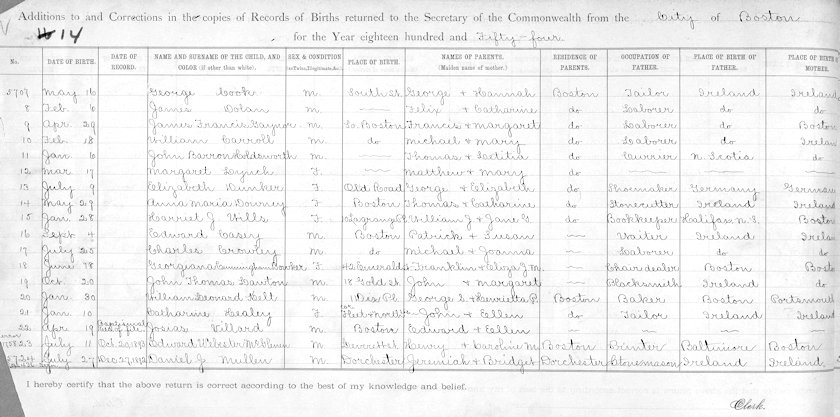 Additions to and Corrections in the copies of Records of Births returned to the Secretary of the Commonwealth from the City of Boston
14 for the Year eighteen hundred and Fifty-four
No. DATE OF BIRTH. DATE OF RECORD. NAME AND SURNAME OF THE CHILD, AND COLOR (if other than white). SEX & CONDITION (as Twins, Illegitimate, &c.) PLACE OF BIRTH. NAMES OF PARENTS. (Maiden name of mother.) RESIDENCE OF PARENTS. OCCUPATION OF FATHER. PLACE OF BIRTH OF FATHER. PLACE OF BIRTH OF MOTHER.
5707 May 16 George Cook M. South St. George + Hannah Boston Tailor Ireland Ireland
8 Feb 6 James Dolan M. Felix + Catharine do Laborer do do
9 Apr 29 James Francis Gaynor M. So. Boston Francis + Margaret do Laborer do Boston
10 Feb 18 William Carroll M. do Michael + Mary do Laborer do Irelan
11 Jan 6 John Barron Holdsworth M. Thomas + Letitia do Currier N. Scotia do
12 Mar 17 Margaret Lynch F. Matthew + Mary do
13 July 9 Elizabeth Dunker F. Old Road George + Elizabeth do Shoemaker Germany German
14 May 29 Anna Maria Downey F. Boston Thomas + Catharine do Stonecutter Ireland Ireland
15 Jan 28 Harriet J Wills F. Lagrange Pl William J + Jane G. do Bookkeeper Halifax N.S. Boston
16 Sept 4 Edward Casey M. Boston Patrick + Susan Waiter Ireland Irela
17 July 25 Charles Crowley M. do Michael + Joanna Laborer do do
18 June 78 Georgiana Cunningham F. 42 Emerald St Franklin + Eliza J. M. Chair dealer Boston Bost
19 Oct. 20 John Thomas Lawton M. 18 Gold St. John + Margaret Blacksmith Ireland do
20 Jan 30 William Leonard Hill M. 1 Dix Pl George S + Henrietta P. Boston Baker Boston Portsmouth
21 Jan 10 Catharine Healey F. John + Ellen do Tailor Ireland Ireland
22 Apr 19 Josias Villard M. Boston Edward + Ellen
5723 July 11 Oct. 20, 1892 Edward Webster M. Henry + Caroline M. Boston Baltimore Boston
5724 July 27 Dec 27, 1892 Daniel J Mullen M. Dorchester Jeremiah + Bridget Dorchester Stonemason Ireland Ireland
I hereby certify that the above return is correct according to the best of my knowledge and belief.
Clerk.